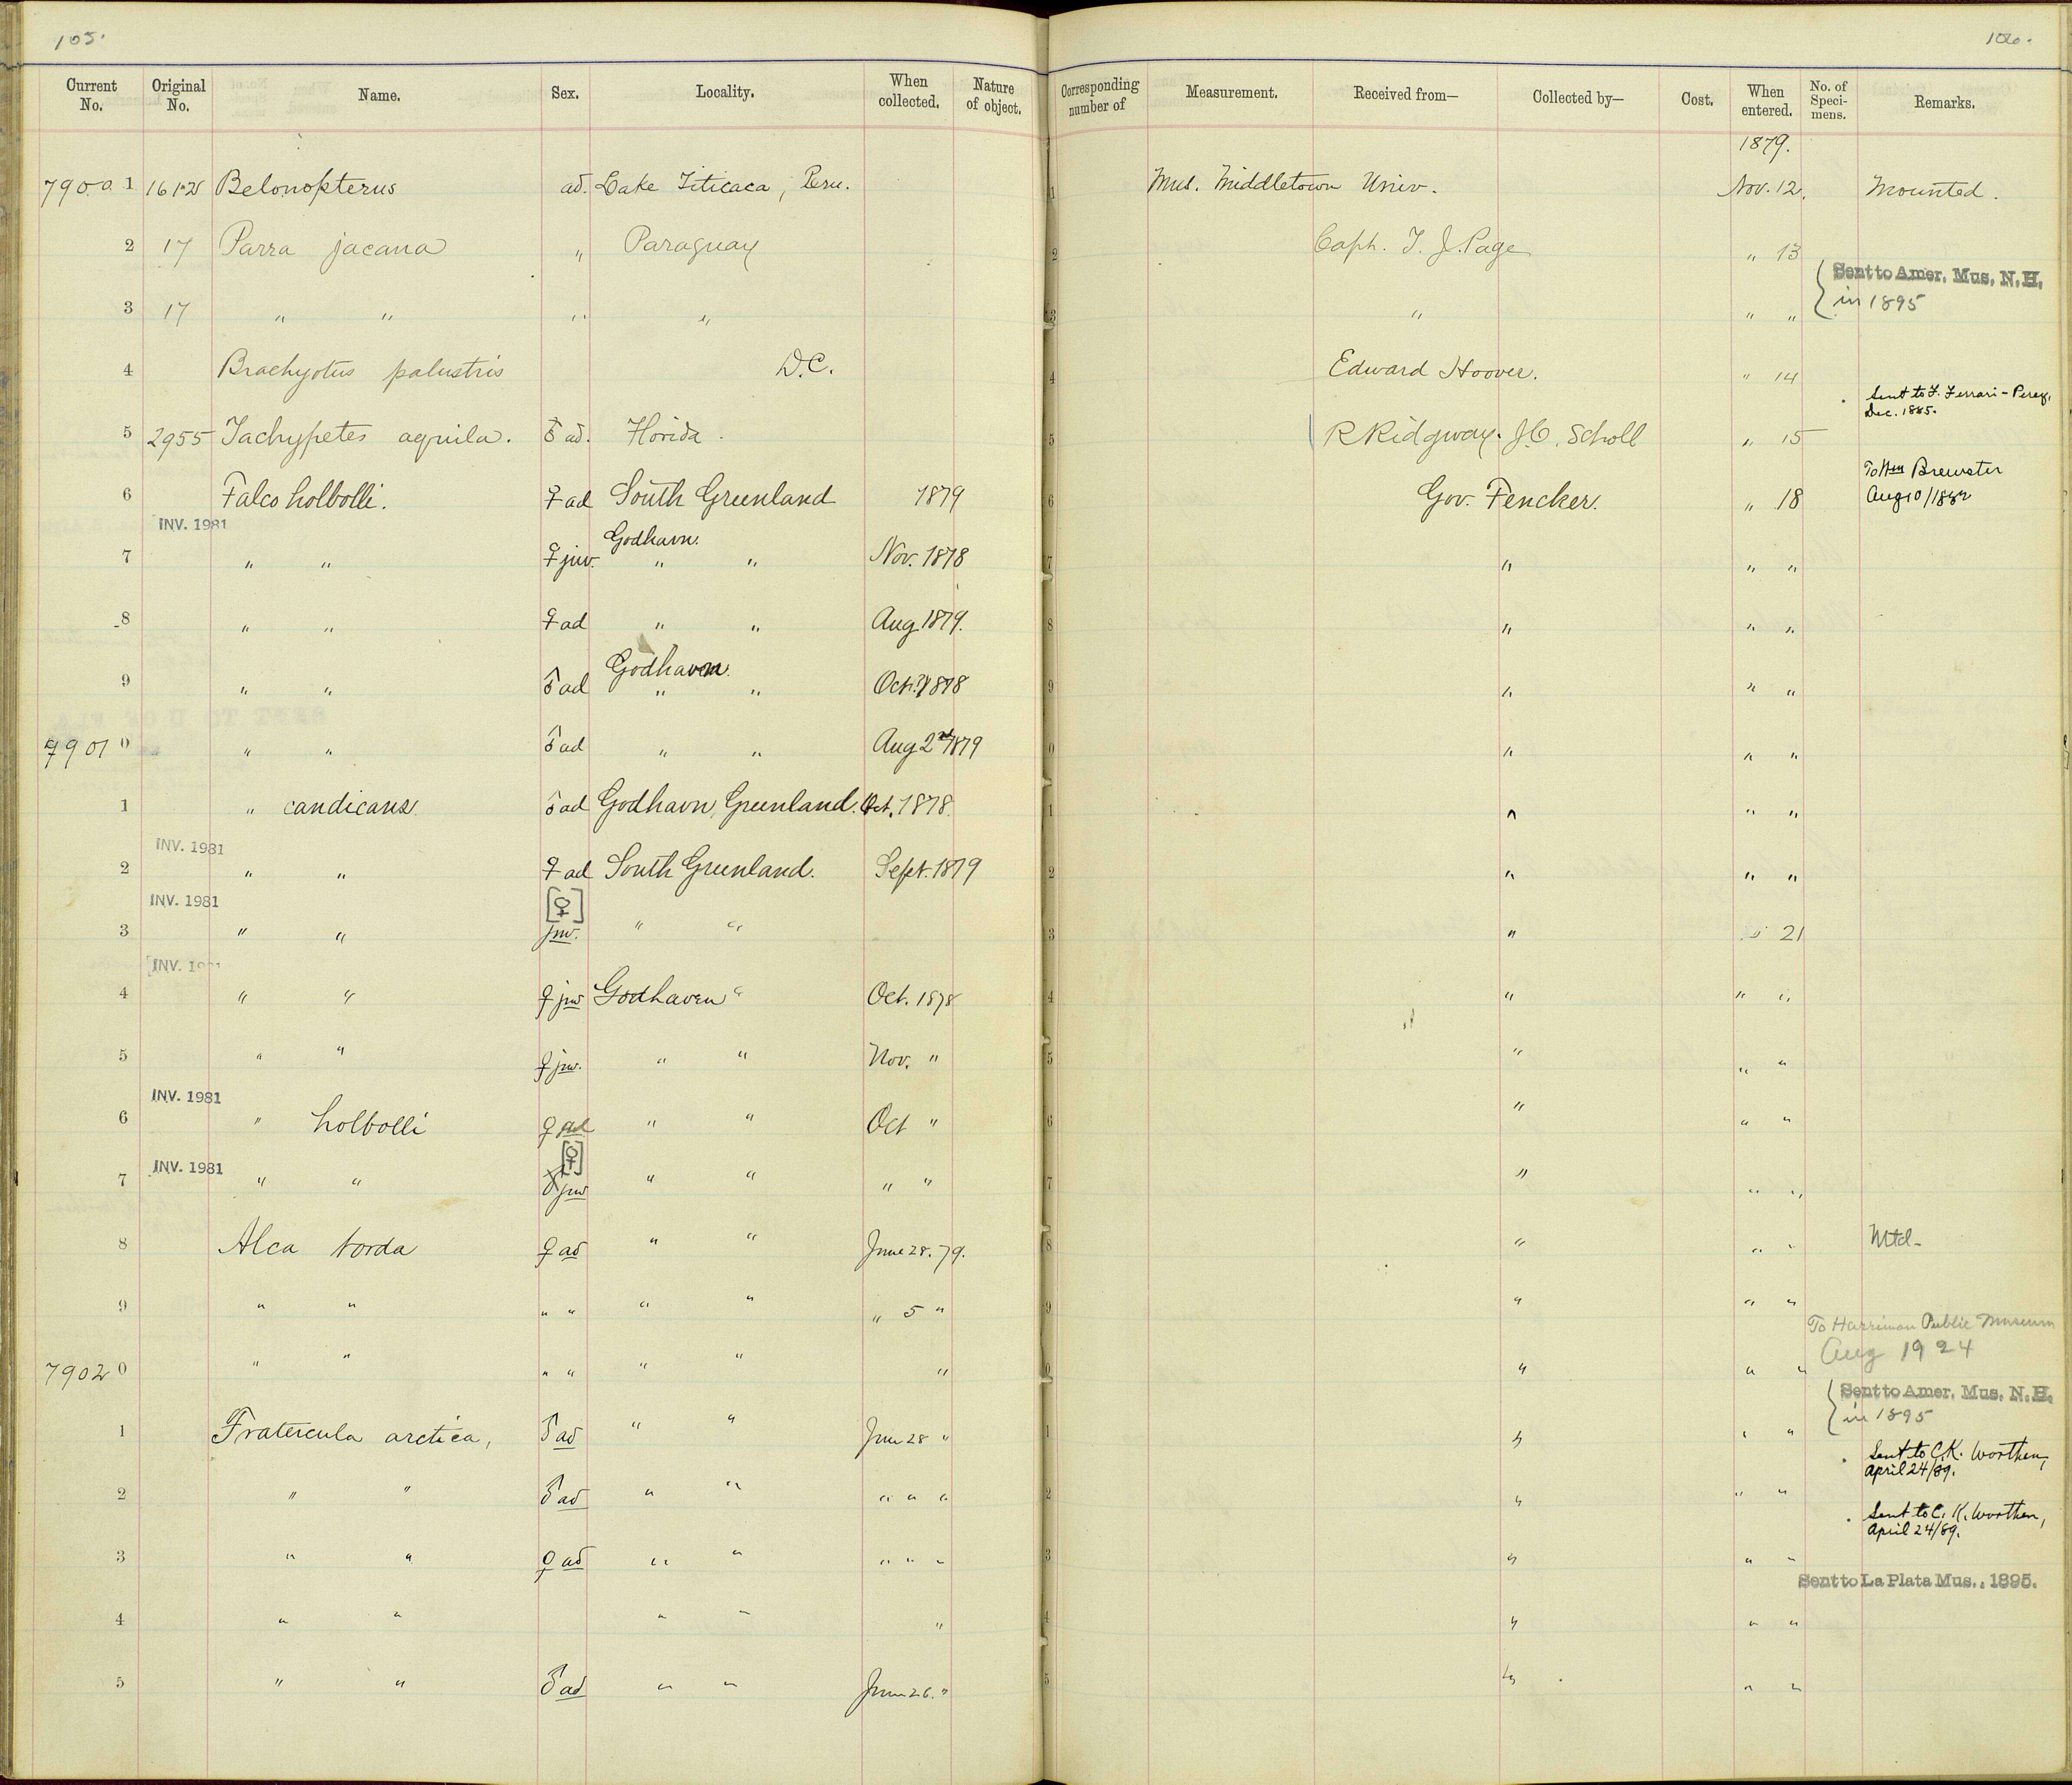 105.
106.
Current No. Original No. Name. Sex. Locality. When collected. Nature of object. Corresponding number of Measurement. Received from— Collected by— Cost. When entered. No. of Specimens. Remarks.
1879.
7900 1 Belonopterus ad. Lake Titicaca, Peru. 1 Mus. Middletown Univ. Nov. 12. Mounted.
2 17 Parra jacana " Paraguay 2 Capt. T. J. Page " 13
Sent to Amer. Mus. N. H.
in 1895
3 17 " " " " 3 " " "
4 Brachyotus palustris D.C. 4 Edward Hoover. " 14
Sent to F. Ferrari-Perez,
Dec. 1885.
5 2955 Tachypetes aquila. ♂ ad. Florida. 5 R Ridgway. J.C. Scholl " 15
To Wm Brewster
6 Falco holbolli. ♀ ad South Greenland 1879 6 Gov. Fencker. " 18 Aug 10/1882
INV. 1981
Godhavn.
7 " " ♀ juv. " " Nov. 1878 7 " " "
8 " " ♀ ad " " Aug 1879. 8 " " "
Godhaven.
9 " " ♂ ad " " Oct. 1878 9 " " "
7901 0 " " ♂ ad " " Aug 2nd 1879 0 " " "
1 " candicans ♂ ad Godhavn, Greenland. Oct. 1878. 1 " " "
INV. 1981
2 " " ♀ ad South Greenland. Sept. 1879 2 " " "
INV. 1981
[♀]
3 " " juv. " " 3 " " 21
INV. 1981
4 " " ♀ juv Godhaven " Oct. 1878 4 " " "
5 " " ♀ juv. " " Nov. " 5 " " "
INV. 1981
6 " holbolli ♀ ad " " Oct " 6 " " "
INV. 1981
[♀]
7 " " ♂ juv " " " " 7 " " "
8 Alca torda ♀ ad " " June 28. 79. 8 " " " Mtd-
9 " " " " " " " 5 " 9 " " "
To Harriman Public Museum
Aug 1924
7902 0 " " " " " " " 0 " " "
Sent to Amer. Mus. N. H.
in 1895
1 Fratercula arctica, ♂ ad " " June 28 " 1 " " "
Sent to C.K. Worthen,
April 24/89.
2 " " ♂ ad " " " " " 2 " " "
Sent to C. K. Worthen,
April 24/89.
3 " " ♀ ad " " " " " 3 " " "
Sent to La Plata Mus., 1895.
4 " " " " " 4 " " "
5 " " ♂ ad " " June 26. " 5 " " "